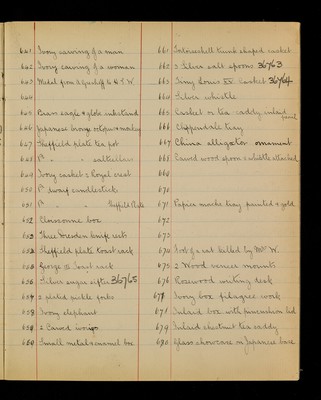 641 Ivory carving of a man
642 Ivory carving of a woman
643 Medal from to H.S.W.
644
645 Brass eagle & globe inkstand
646 Japanese bronze octopus & monkey
647 Sheffield plate tea pot
648 Pr " " saltcellars
649 Ivory casket & Royal crest
650 Pr dwarf candlestick
651 Pr " " Sheffield Plate
652 Cloisonne box
653 Three Dresden knife rests
654 Sheffield plate toast rack
655 George III Toast rack
656 Silver sugar sifter 36765
657 2 plated pickle forks
658 Ivory elephant
659 2 Carved
660 Small metal & enamel box
661 Tortoiseshell trunk shaped casket
662 2 Silver salt spoons 36763
663 Tiny Louis XV casket 36764
664 Silver whistle
665 Casket or tea caddy, inlaid
panel
666 Chippendale tray
667 China alligator ornament
668 Carved wood spoon & whistle attached
669
670
671 Papier mache tray painted & gold
672
673
674 Foot of a cat killed by Mr W.
675 2 Wood screen mounts
676 Rosewood writing desk
677 Ivory box filagree work
678 Inlaid box with pincushion lid
679 Inlaid chestnut tea caddy
680 Glass showcase on Japanese base